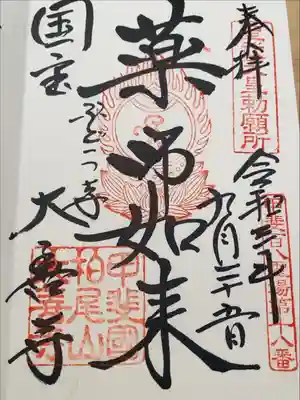 奉拝
皇勅願所
令和三年
九月二十五日
甲斐百八霊場第十八番
薬师如来
国宝
ぶどう寺
大善寺
甲斐國
柏尾山
大善寺